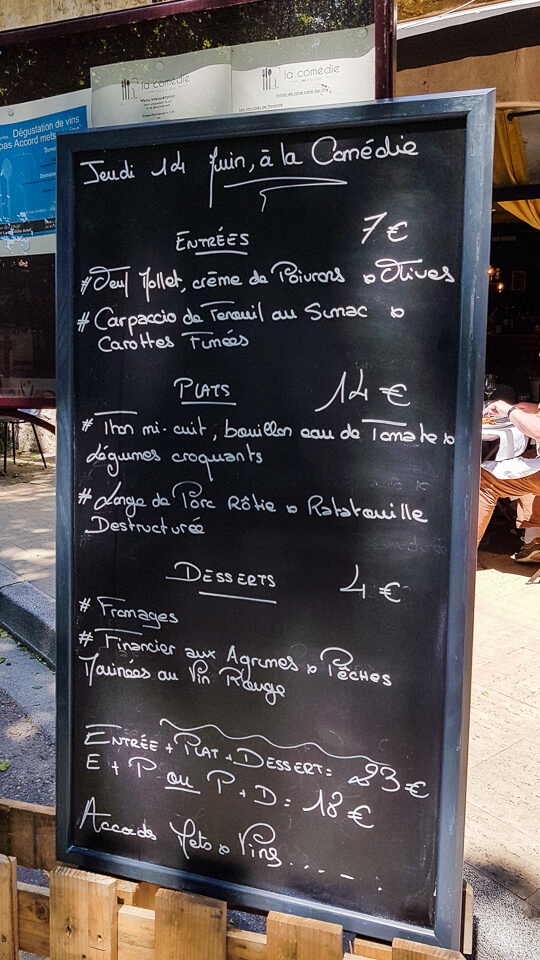 la comédie
la comédie
Dégustation de vins
Accord mets
Jeudi 14 Juin, à la Comédie
ENTRÉES 7 €
# Oeuf Mollet, crème de Poivrons & Olives
# Carpaccio de Fenouil au Sumac &
Carottes Fumées
PLATS 14 €
# Thon mi-cuit, bouillon eau de Tomate &
Légumes croquants
# Longe de Porc Rôtie & Ratatouille
Destructurée
DESSERTS 4 €
# Fromages
# Financier aux Agrumes & Pêches
Marinées au Vin Rouge
ENTRÉE + PLAT + DESSERT = 23 €
E + P ou P + D = 18 €
Accords Mets & Vins.....